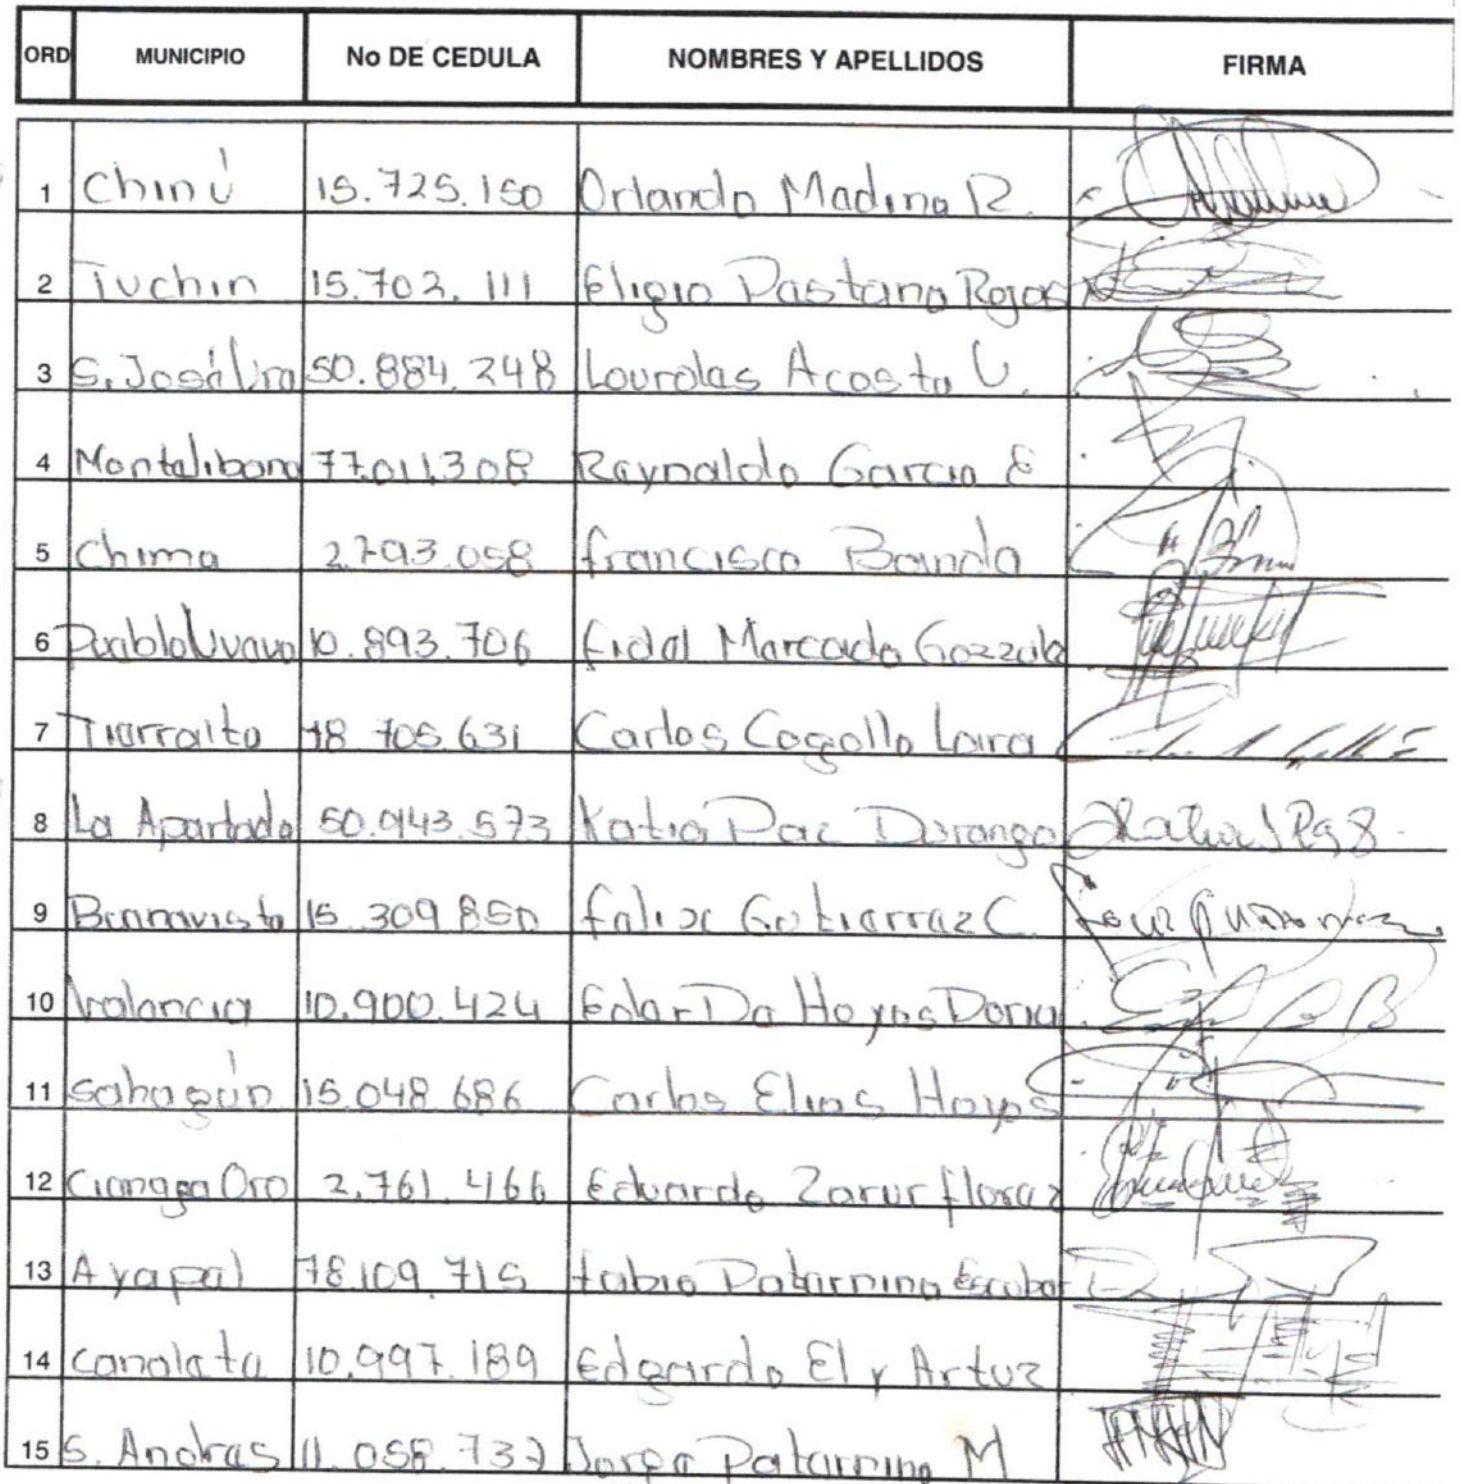 ORD MUNICIPIO No DE CEDULA NOMBRES Y APELLIDOS FIRMA
1 Chinú 15.725.150 Orlando Madina R.
2 Tuchin 15.702.111 Eligio Pastana Rojas
3 S. José Ura 50.884.248 Lourdas Acosta V.
4 Montalibano 77.011.308 Raynaldo Garcia E
5 Chima 2.793.058 francisco Banda
6 Puablo Nuavo 10.893.706 fidal Marcado
7 Tiarralta 78 705.631 Carlos Cogollo Lara
8 La Apartada 50.943.573 Katia Paz Durango
9 Buanavista 15.309.850 falix Gutiarraz C.
10 Valancia 10.900.424 Edar Da Hoyos Doria
11 Sahagún 15.048.686 Carlos Elias Hoyos
12 Cianaga Oro 2.761.466 Eduardo Zarur floraz
13 Ayapal 78.109.715 fabio Patarnina Escobar
14 Canalata 10.997.189 Edgardo Ely Artuz
15 S. Andras 11.058.737 Jorga Patarnina M